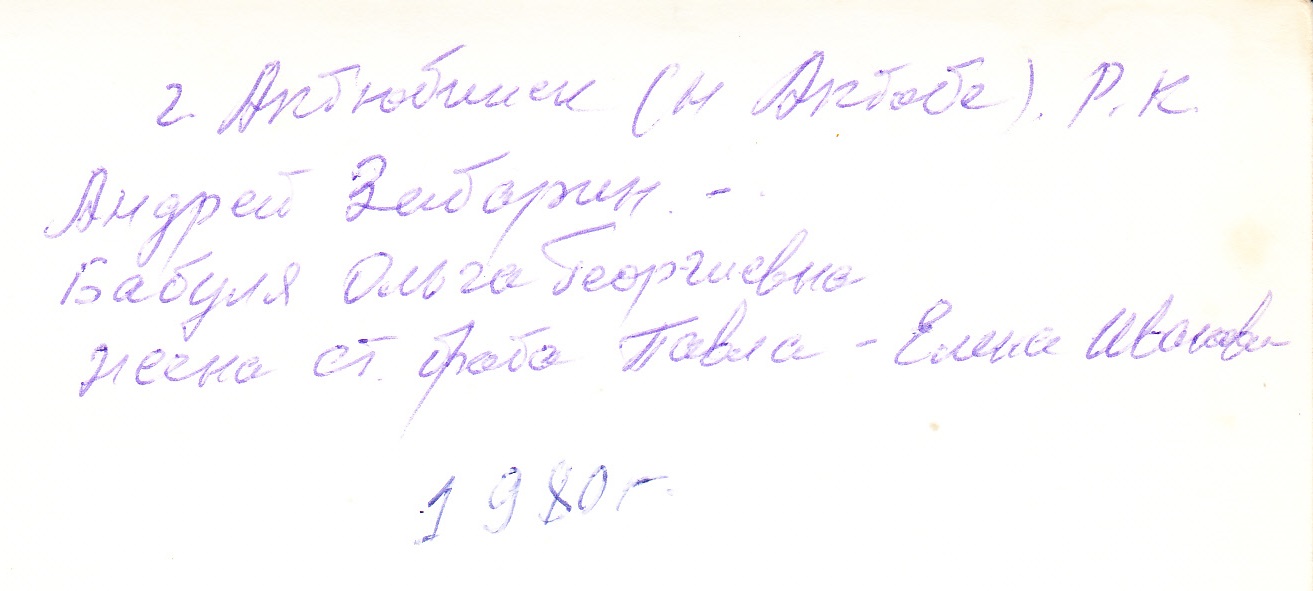 г. Актюбинск (н Актобе). Р.К.
Андрей Забарин. -
Бабуля Ольга Георгиевна
жена ст. брата Павла - Елена Иванов
1980 г.